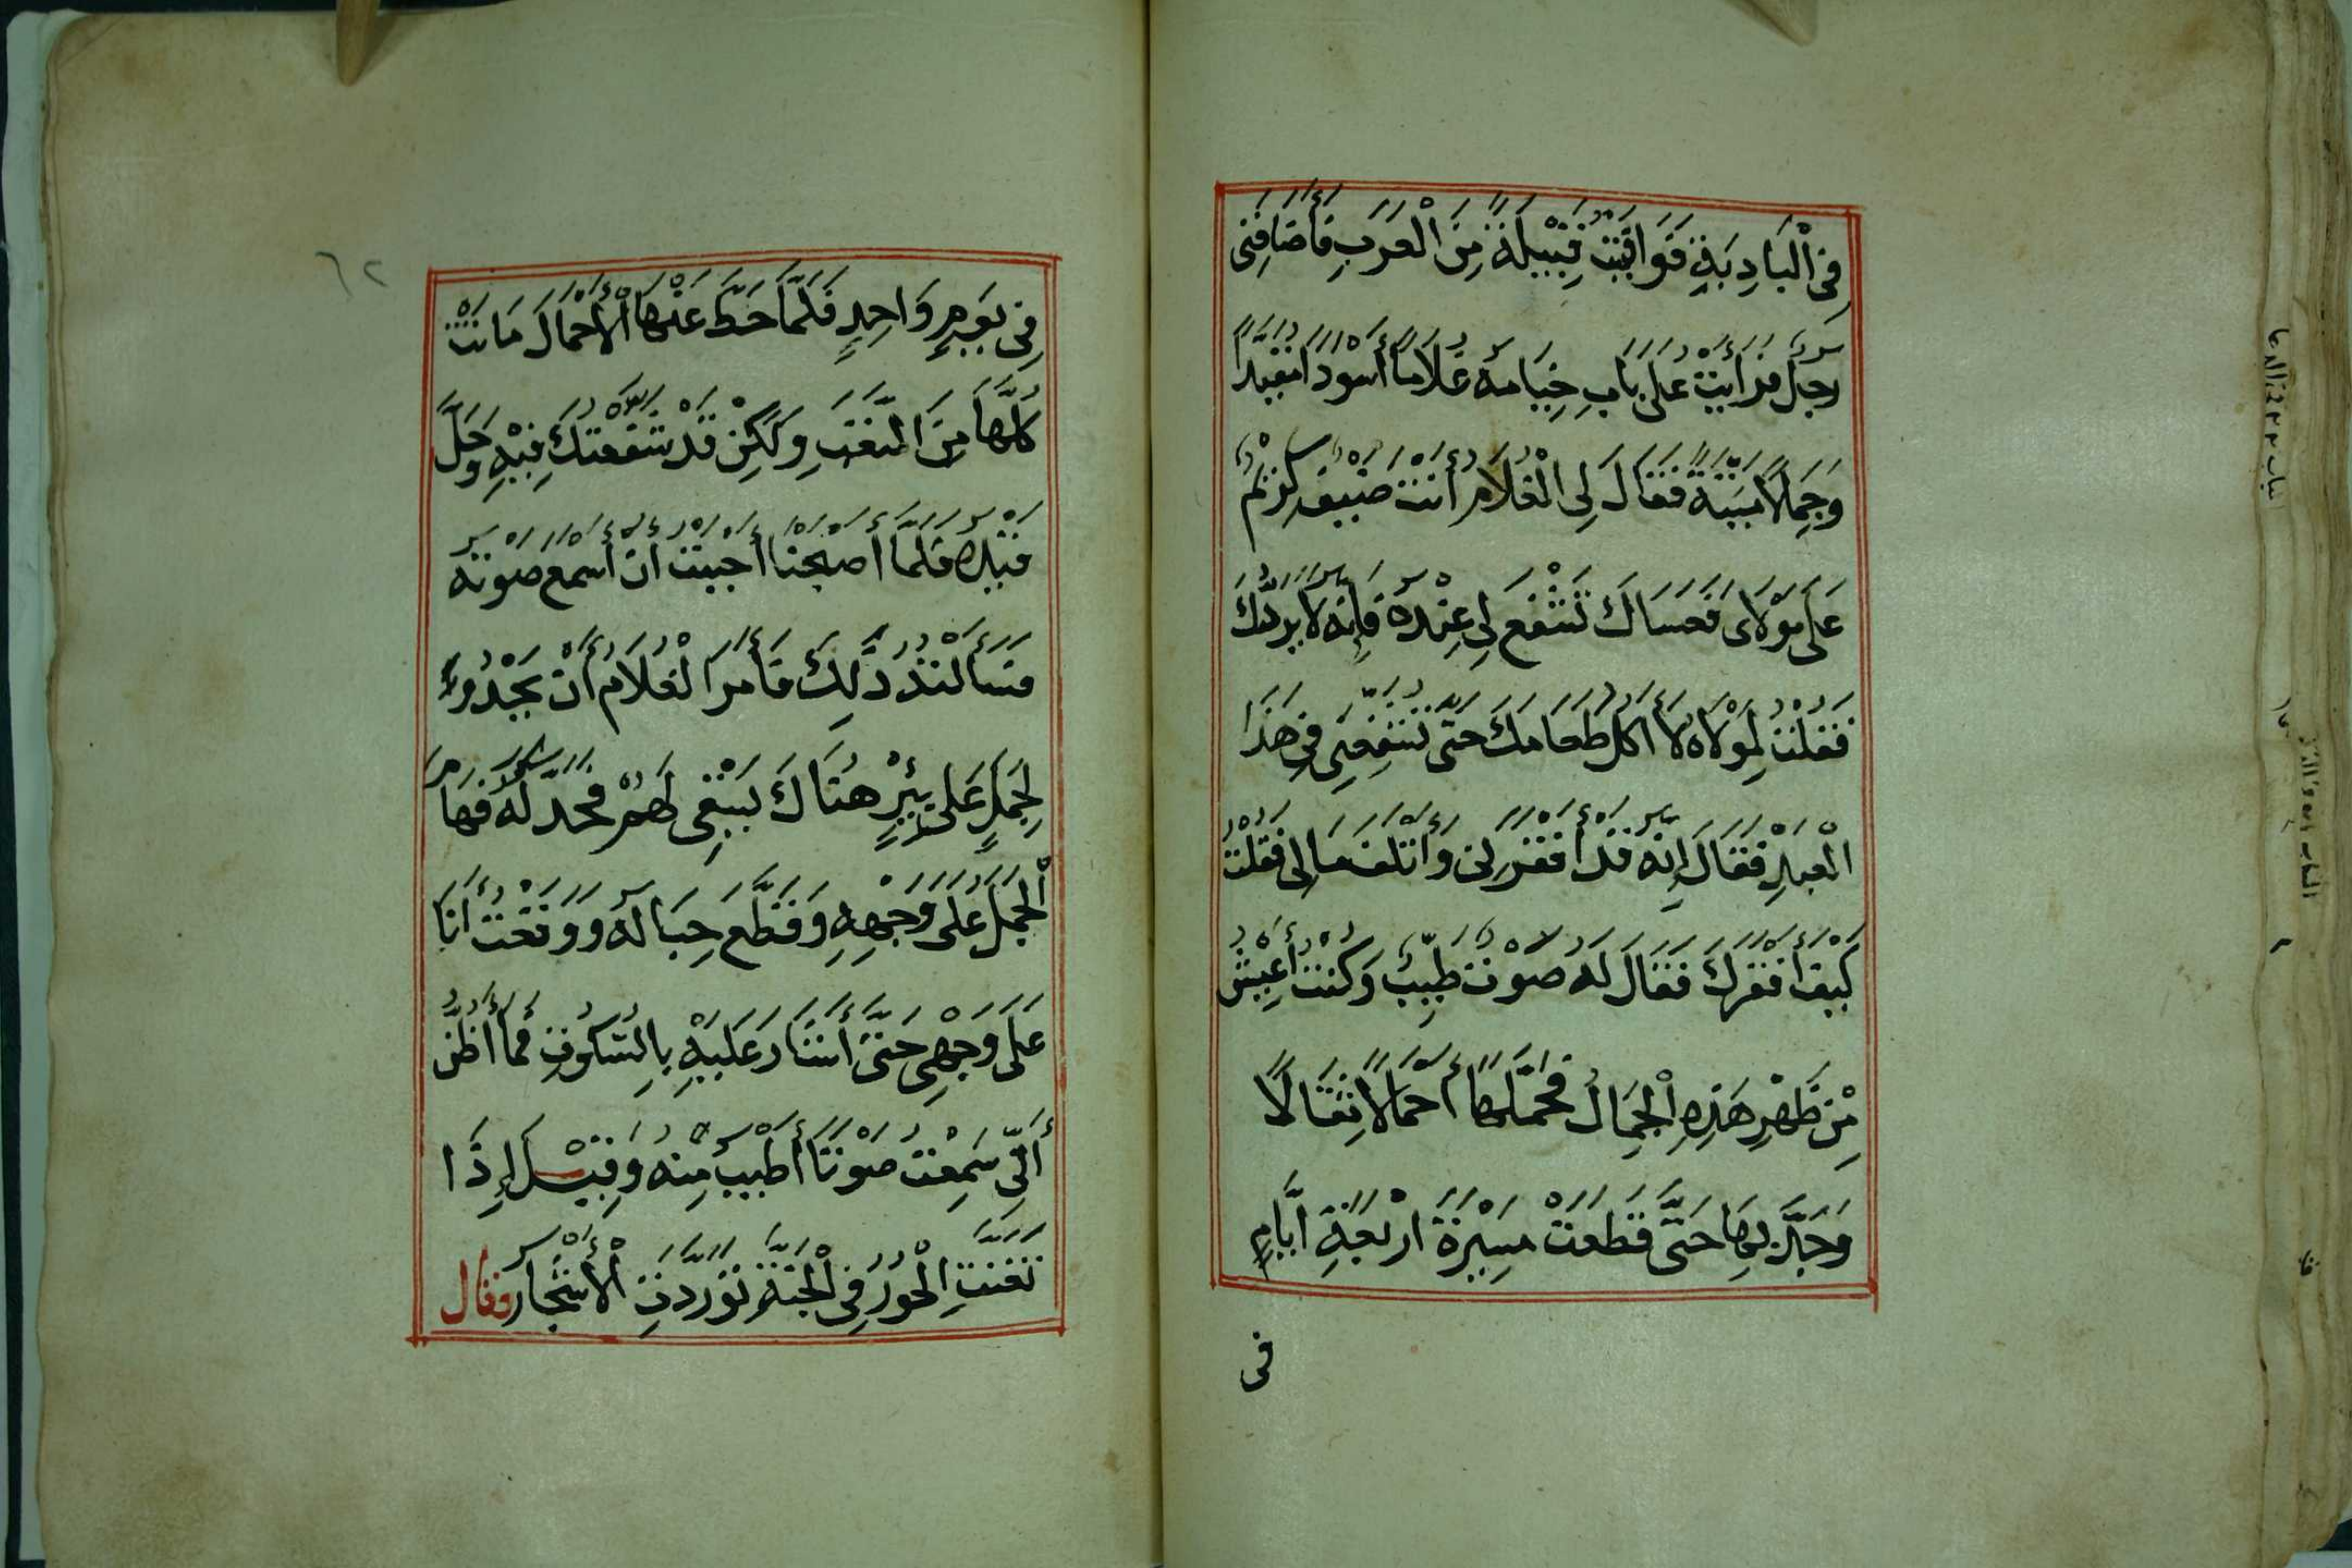 فِى الْبَادِيَةِ فَوَافَيْتُ قَبِيْلَةً مِنَ الْعَرَبِ فَأَضَافَنِى
رَجُلٌ فَرَأَيْتُ عَلَى بَابِ خِيَامِهِ غُلَامًا أَسْوَدًا مُقَيَّدًا
وَجِمَالًا مَيِّتَةً فَقَالَ لِى الْغُلَامُ أَنْتَ ضَيْفٌ كَرِيْمٌ
عَلَى مَوْلَاىَ فَعَسَاكَ تَشْفَعُ لِى عِنْدَهُ فَإِنَّهُ لَا يَرُدُّكَ
فَقُلْتُ لِمَوْلَاهُ لَا أَكُلُ طَعَامَكَ حَتَّى تُشَفِّعَنِى فِى هَذَا
الْعَبْدِ فَقَالَ إِنَّهُ قَدْ أَفْقَرَنِى وَأَتْلَفَ مَالِى فَقُلْتُ
كَيْفَ أَفْقَرَكَ فَقَالَ لَهُ صَوْتٌ طَيِّبٌ وَكُنْتُ أَعِيْشُ
مِنْ ظَهْرِ هَذِهِ الْجِمَالُ فَحَمَّلَهَا أَحْمَالًا ثِقَالًا
وَجَدَّ بِهَا حَتَّى قَطَعَتْ مَسِيْرَةَ اَرْبَعَةِ اَيَّامٍ
فى
٦٢
فِى يَوْمٍ وَاحِدٍ فَلَمَّا حَطَّ عَنْهَا الْأَحْمَالَ مَاتَتْ
كُلُّهَا مِنَ التَّعَبِ وَلَكِنْ قَدْ شَفَّعْتُكَ فِيْهِ وَحَلَّ
قَيْدَهُ فَلَمَّا أَصْبَحْنَا أَحْبَبْتُ أَنْ أَسْمَعَ صَوْتَهُ
فَسَأَلْتُهُ ذَلِكَ فَأَمَرَ الْغُلَامُ أَنْ يَحْدُوءَ
لِجَمَلٍ عَلَى بِئْرٍ هُنَاكَ يَسْتَقِى لَهُمْ فَحَدَّلَهُ فَهَامَ
الْجَمَلُ عَلَى وَجْهِهِ وَقَطَّعَ حِبَالَهُ وَوَقَعْتُ أَنَا
عَلَى وَجْهِى حَتَّى أَشَارَ عَلَيْهِ بِالسُّكُوتِ فَمَا أَظُنُّ
أَنِّى سَمِعْتُ صَوْتًا أَطْيَبَ مِنْهُ وَقِيْلَ إِذَا
تَغَنَّتِ الْحُوْرُ فِى الْجَنَّةِ تَوَرَّدَتِ الْأَشْجَارُ فقال